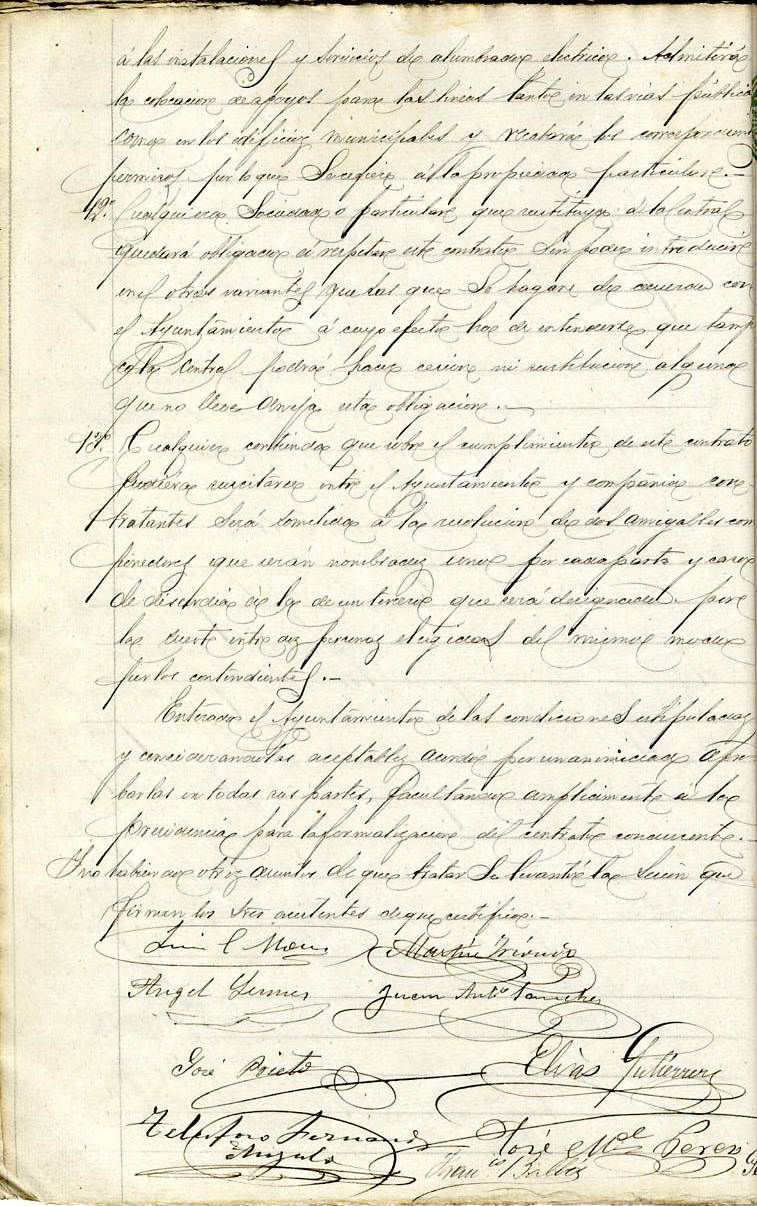 á las instalaciones y servicios de alumbrado electrico. Admitirá
la colocacion de apoyos para las lineas tanto en las vias públic
como en los edificios municipales y recabará los correspondien
permisos por lo que se refiere á la propiedad particular.-
12ª. Cualquiera Sociedad o particular que sustituya á la Central
quedará obligado á respetar este contrato sin poder introducir
en el otras variantes que las que se hagan de acuerdo con
el Ayuntamiento á cuyo efecto ha de entenderse que tamp
co la Central podrá hacer cesion ni sustitucion alguna
que no lleve aneja esta obligacion.-
13ª. Cualquier contienda que sobre el cumplimiento de este contrato
pudiera suscitarse entre el Ayuntamiento y compañia con-
tratantes será sometida á la resolucion de dos amigables com
ponedores que serán nombrados uno por cada parte y caso
de discordia á la de un tercero que será designado por
la suerte entre diez personas elegidas del mismo modo
por los contendientes.-
Enterado el Ayuntamiento de las condiciones estipuladas
y considerandolas aceptables acordó por unanimidad apro-
barlas en todas sus partes, facultando ampliamente á la
presidencia para la formalizacion del contrato concerniente.-
Y no habiendo otros asuntos de que tratar se levantó la sesion que
firman los Sres asistentes de que certifico.-
Luis C
Martin
Angel
Juan Antº Sanchez
José Prieto
Elias Gutierrez
Telesforo Fernandez
Angulo
José Mel Perez